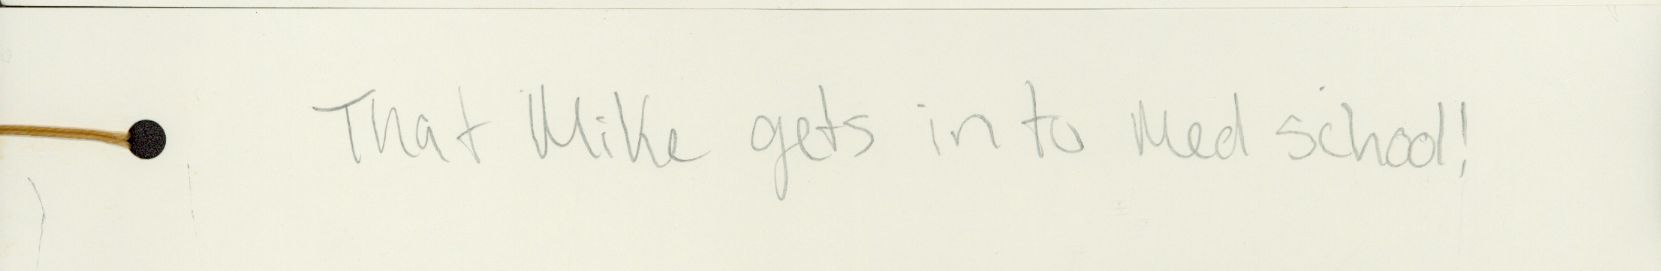 That Mike gets into Med school!